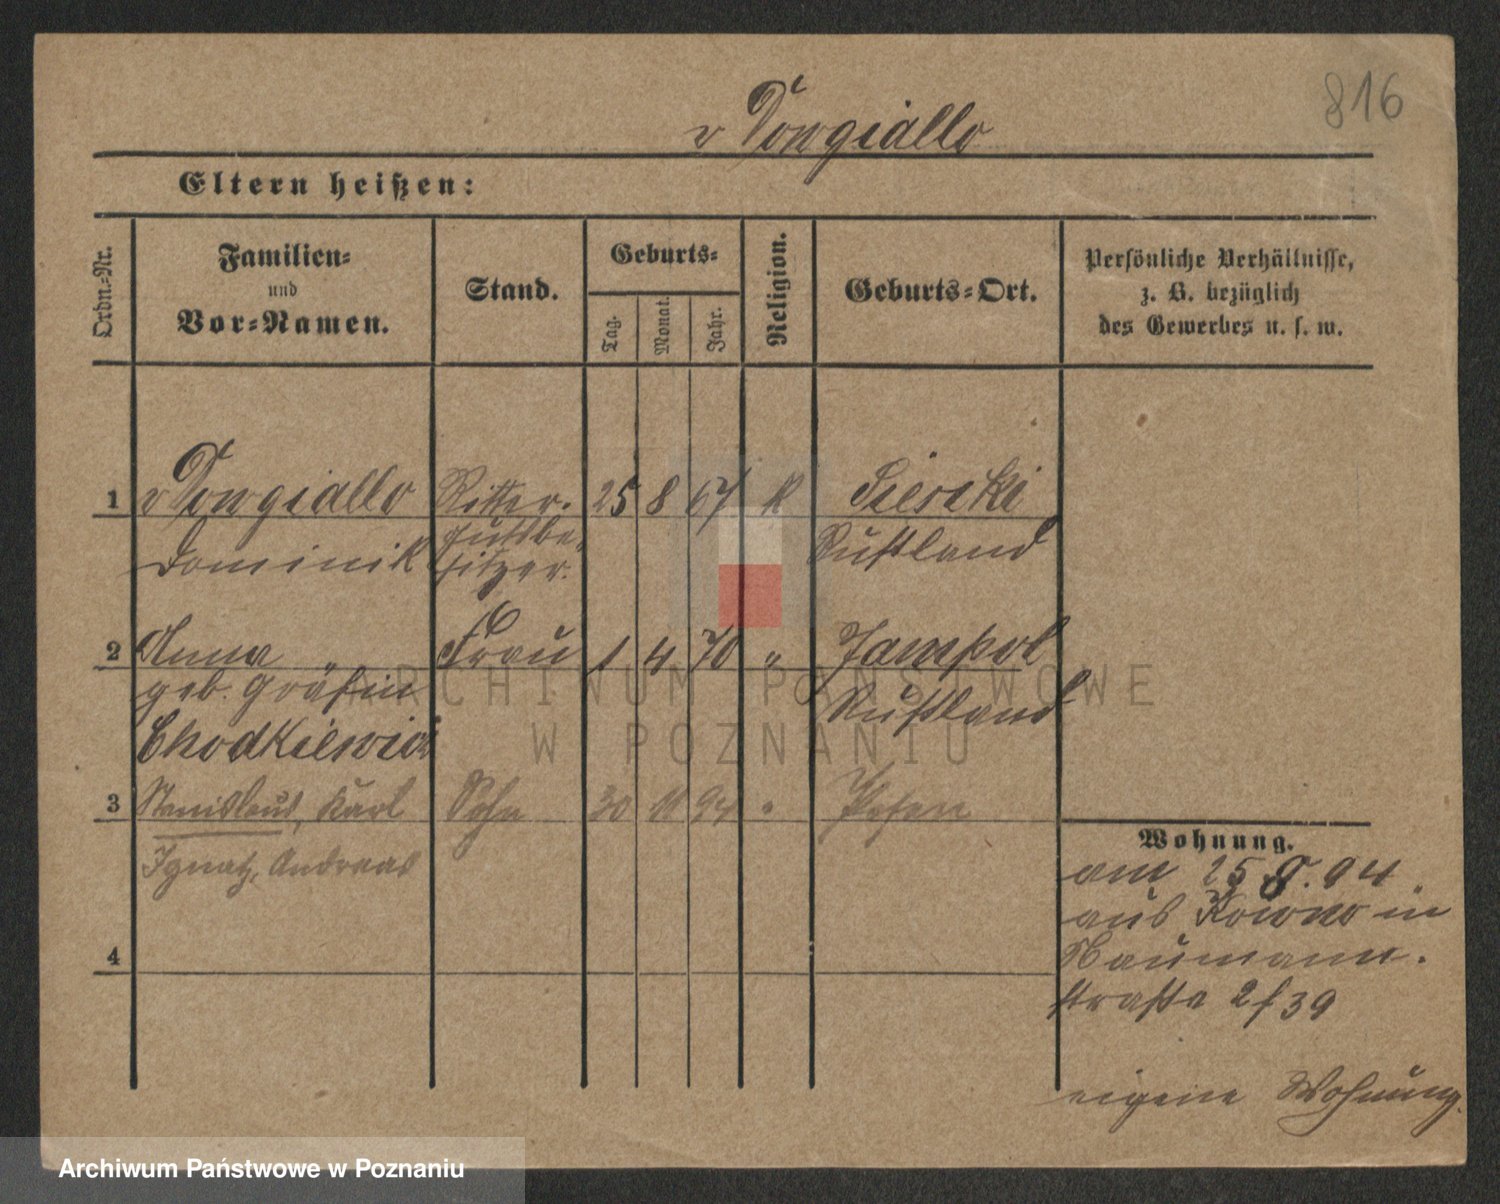 816
v Dowgiallo
Eltern heißen:
Ordn.-Nr.
Familien-
und
Vor-Namen.
Stand.
Geburts-
Tag.
Monat.
Jahr.
Religion.
Geburts-Ort.
Persönliche Verhältnisse,
z. B. bezüglich
des Gewerbes u. s. w.
1 v Dowgiallo Ritter- 25 8 67 K Siesiki
Dominik gutsbe- Rußland
sitzer.
2 Anna Frau 1 4 70 " Jampol
geb. Gräfin Rußland
Chodkiewicz
3 Stanislaus, Karl Sohn 30 11 94 " Posen
Ignatz, Andreas
4
Wohnung.
am 25 9. 94
aus Kowno in
Naumann-
straße 2 f 39
eigene Wohnung.
ARCHIWUM PAŃSTWOWE
W POZNANIU
Archiwum Państwowe w Poznaniu